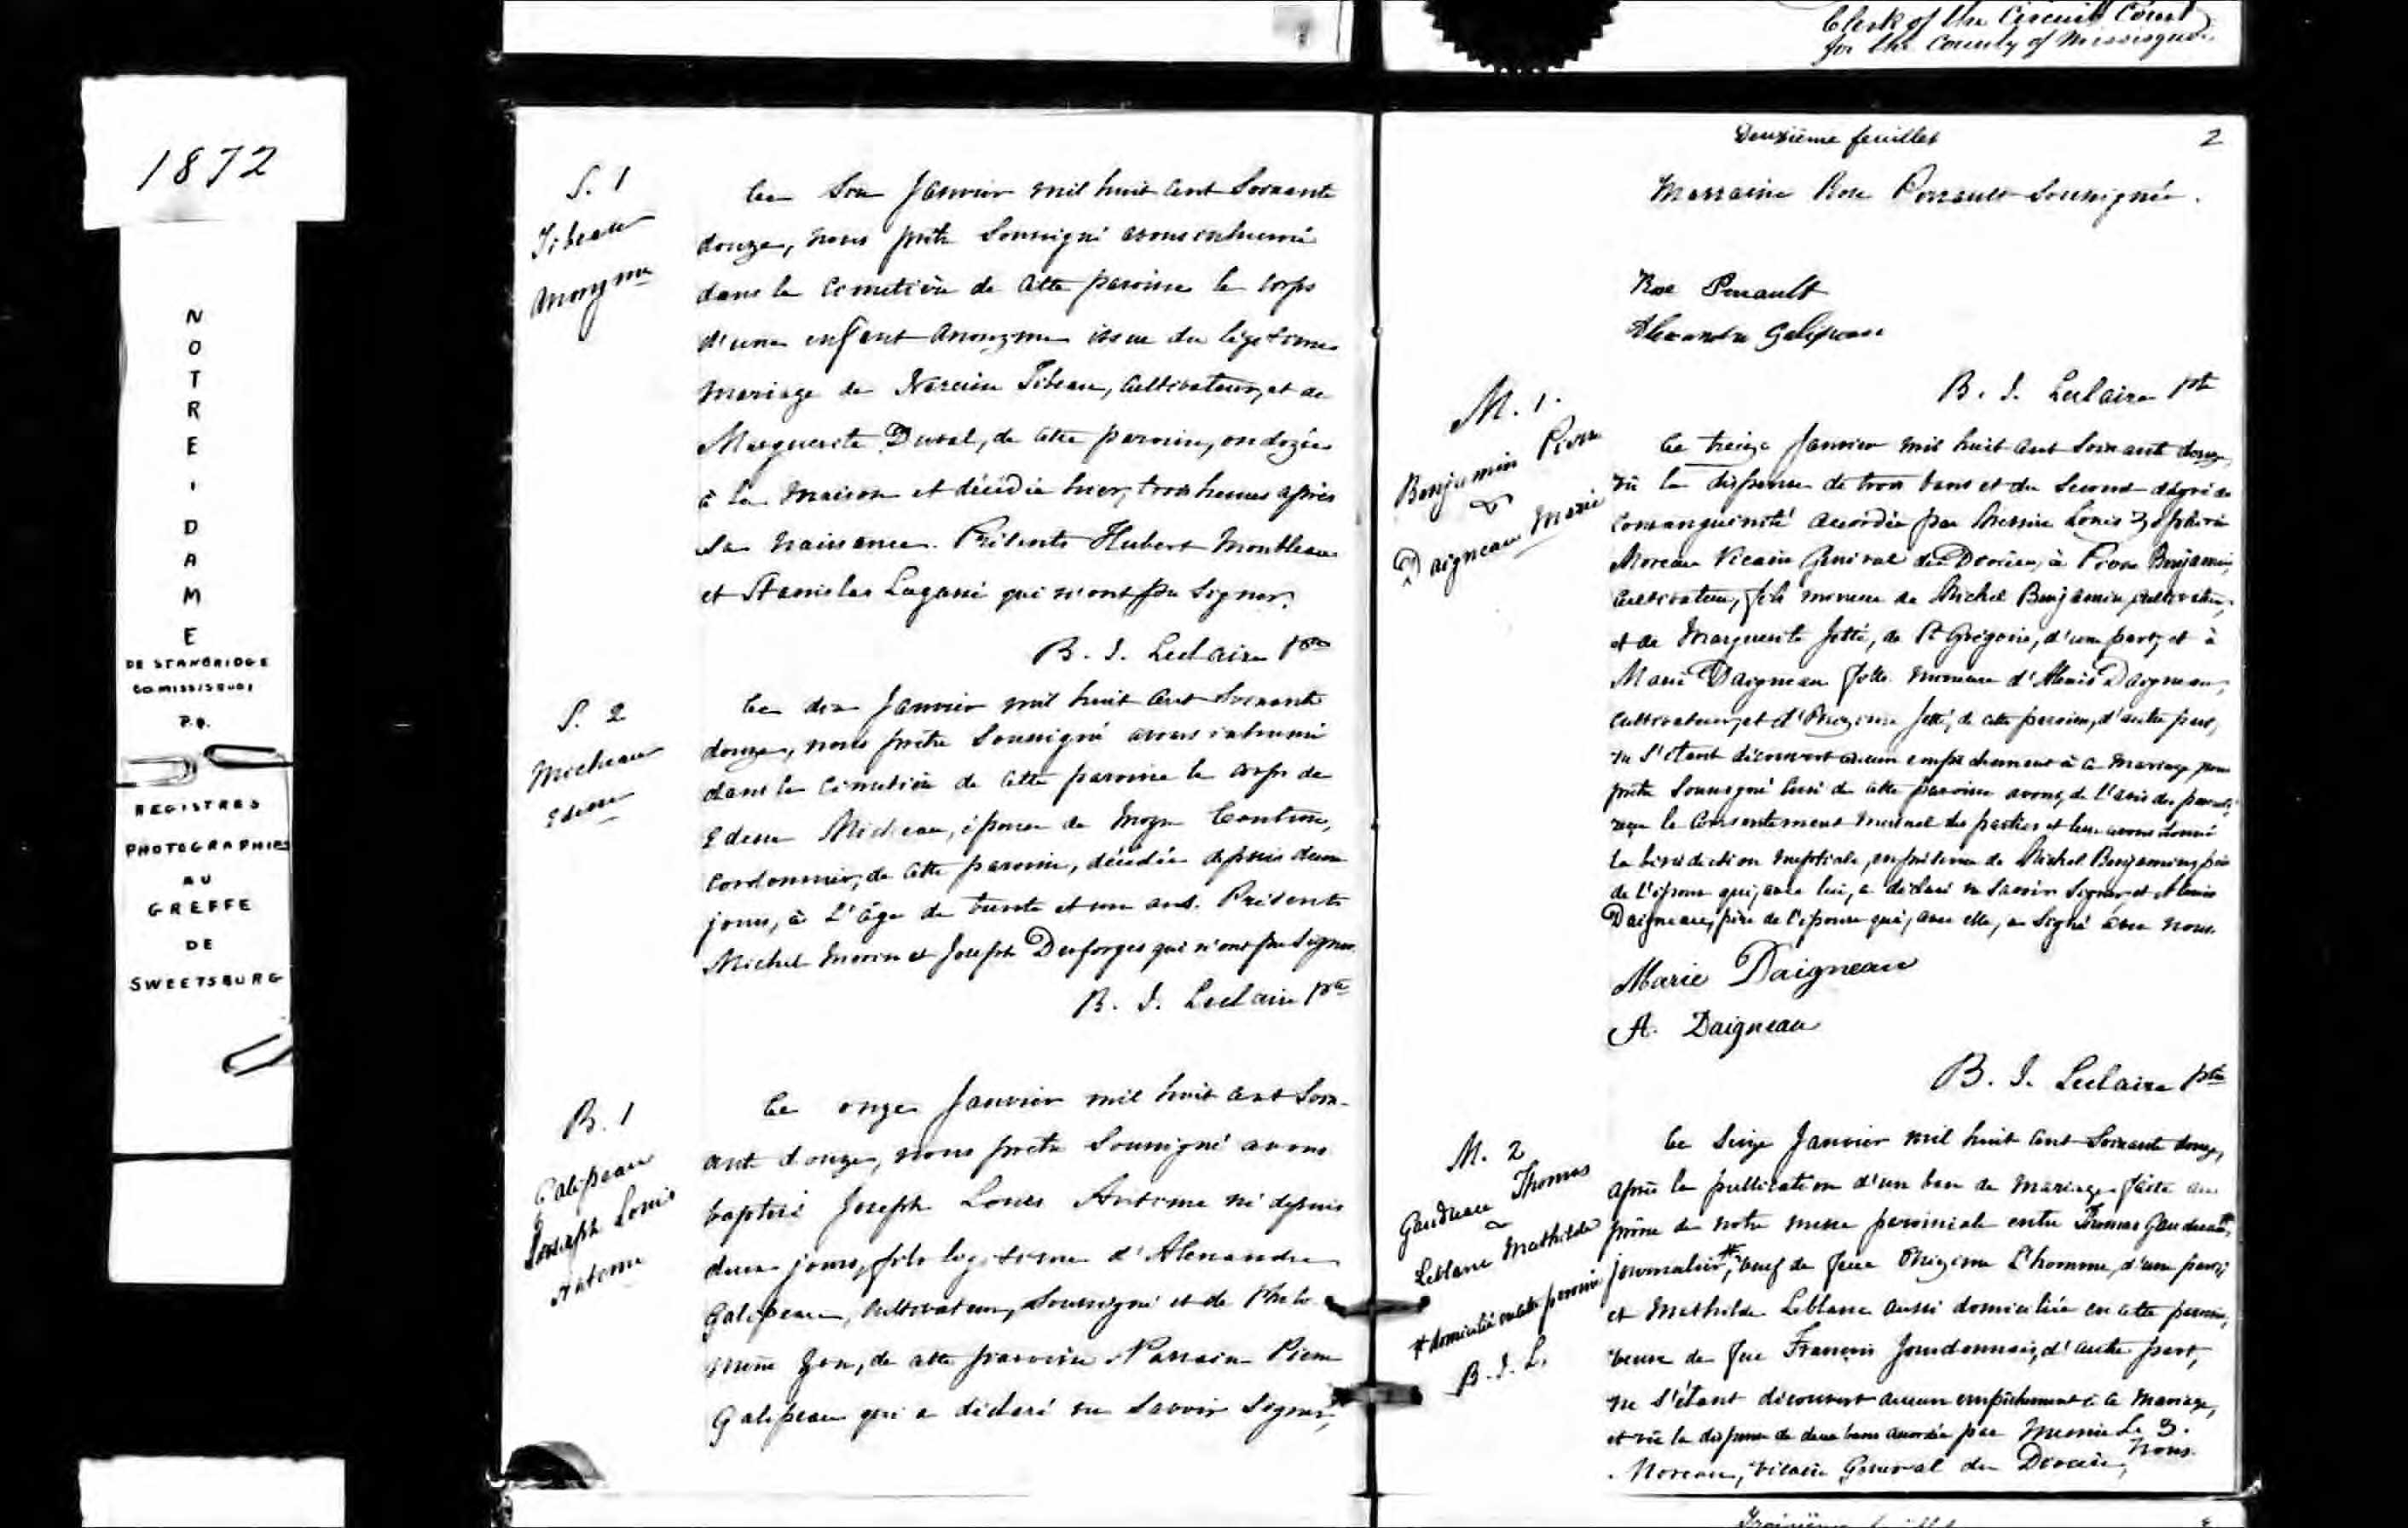 1872
NOTRE-DAME
DE STANBRIDGE
CO MISSISQUOI
P.Q.
REGISTRES
PHOTOGRAPHIES
AU
GREFFE
DE
SWEETSBURG
S. 1
Tibeau
Anonyme
Ce Six Janvier mil huit cent Soixante
douze, nous prêtre Soussigné avons inhumé
dans le cimetière de cette paroisse le corps
d'une enfant anonyme issue du légitime
mariage de Narcisse Tibeau, Cultivateur, et de
Marguerite Duval, de cette paroisse, ondoyée
à la maison et décédée hier, trois heures après
sa naissance. Présents Hubert Montbleau
et Stanislas Lagassé qui n'ont pu signer.
B. J. Leclaire Ptre
S. 2
Micheau
Edesse
Ce dix Janvier mil huit cent Soixante
douze, nous prêtre Soussigné avons inhumé
dans le cimetière de cette paroisse le corps de
Edesse Micheau, épouse de Moyse
Cordonnier, de cette paroisse, décédée depuis deux
jours, à l'âge de trente et un ans. Présents
Michel Morin et Joseph Desforges qui n'ont pu signer
B. J. Leclaire Ptre
B. 1
Galipeau
Joseph Louis
Antoine
Ce onze Janvier mil huit cent Soix-
ante douze, nous prêtre Soussigné avons
baptisé Joseph Louis Antoine né depuis
deux jours, fils légitime d'Alexandre
Galipeau, Cultivateur, Soussigné et de Philo-
mène de cette paroisse. Parrain Pierre
Galipeau qui a déclaré ne savoir signer,
Clerk of the Circuit Court
for the County of Missisquoi.
Deuxième feuillet 2
Marraine Rose Perrault Soussignée.
Rose Perrault
Alexandre Galipeau
B. J. Leclaire Ptre
M. 1.
Benjamin Pierre
&
Daigneau Marie
Ce treize Janvier mil huit cent Soixante douze,
vû la dispense de trois bans et du second degré de
consanguinité accordée par Messire Louis Zéphirin
Moreau Vicaire Général du Diocèse, à Pierre Benjamin,
Cultivateur, fils mineur de Michel Benjamin, cultivateur,
et de Marguerite Jetté, de St Grégoire, d'une part, et à
Marie Daigneau fille mineure d'Alexis Daigneau,
cultivateur, et d'Onézime Jetté, de cette paroisse, d'autre part,
ne s'étant découvert aucun empêchement à ce mariage nous
prêtre Soussigné Curé de cette paroisse avons, de l'avis des parents,
reçu le consentement mutuel des parties et leur avons donné
la bénédiction nuptiale, en présence de Michel Benjamin, père
de l'époux qui, avec lui, a déclaré ne savoir signer, et Alexis
Daigneau, père de l'épouse qui, avec elle, a signé avec nous.
Marie Daigneau
A. Daigneau
B. J. Leclaire Ptre
M. 2
Gaudreau Thomas
&
Leblanc Mathilde
# domicilié en cette paroisse
B. J. L.
Ce Seize Janvier mil huit cent Soixante douze,
après la publication d'un ban de mariage faite au
prône de notre messe paroissiale entre Thomas Gaudreau,
journalier, # veuf de feue Onézime L'homme, d'une part,
et Mathilde Leblanc aussi domiciliée en cette paroisse,
veuve de feu François Jourdonnais, d'autre part,
ne s'étant découvert aucun empêchement à ce mariage,
et vû la dispense de deux bans accordée par Messire L. Z.
Moreau, Vicaire Général du Diocèse, Nous